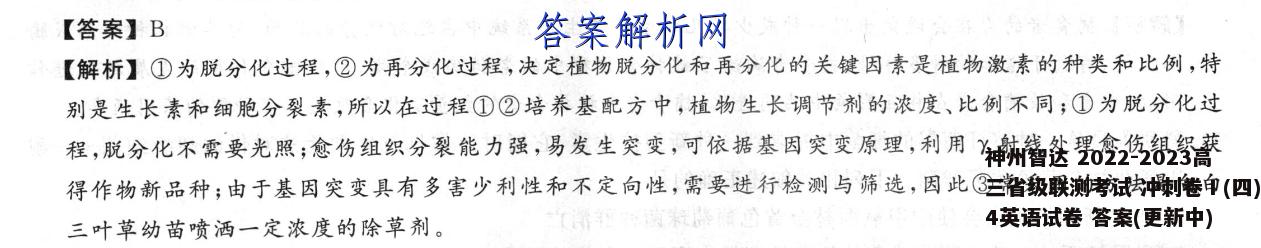 【答案】B
答案解析网
【解析】①为脱分化过程,②为再分化过程,决定植物脱分化和再分化的关键因素是植物激素的种类和比例,特
别是生长素和细胞分裂素,所以在过程①②培养基配方中,植物生长调节剂的浓度、比例不同;①为脱分化过
程,脱分化不需要光照;愈伤组织分裂能力强,易发生突变,可依据基因突变原理,利用γ射线处理愈伤组织获
得作物新品种;由于基因突变具有多害少利性和不定向性,需要进行检测与筛选,因此③
三叶草幼苗喷洒一定浓度的除草剂。
神州智达 2022-2023高
三省级联测考试 冲刺卷Ⅰ(四)
4英语试卷 答案(更新中)